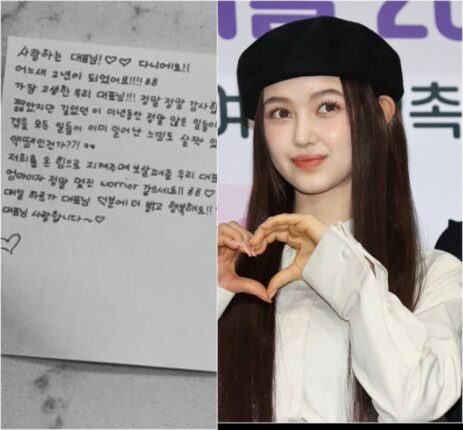 사랑하는 대표님! ♡♡ 다니에요!!
어느새 2년이 되었어요!!!! 88
가장 고생한 우리 대표님!!! 정말 정말 감사합
짧았지만 길었던 이 이년동안 정말 많은 일들이
겪을 모든 일들이 이미 일어난 느낌도 살짝 있
액땜인건가??!
저희를 온 힘으로 지켜주며 우리 대표
엄마이자 정말 멋진 worrior 같으세요!! 88
매일 하루가 대표님 덕분에 더 밝고 행복해요!!
대표님 사랑합니다~♡
20
촉